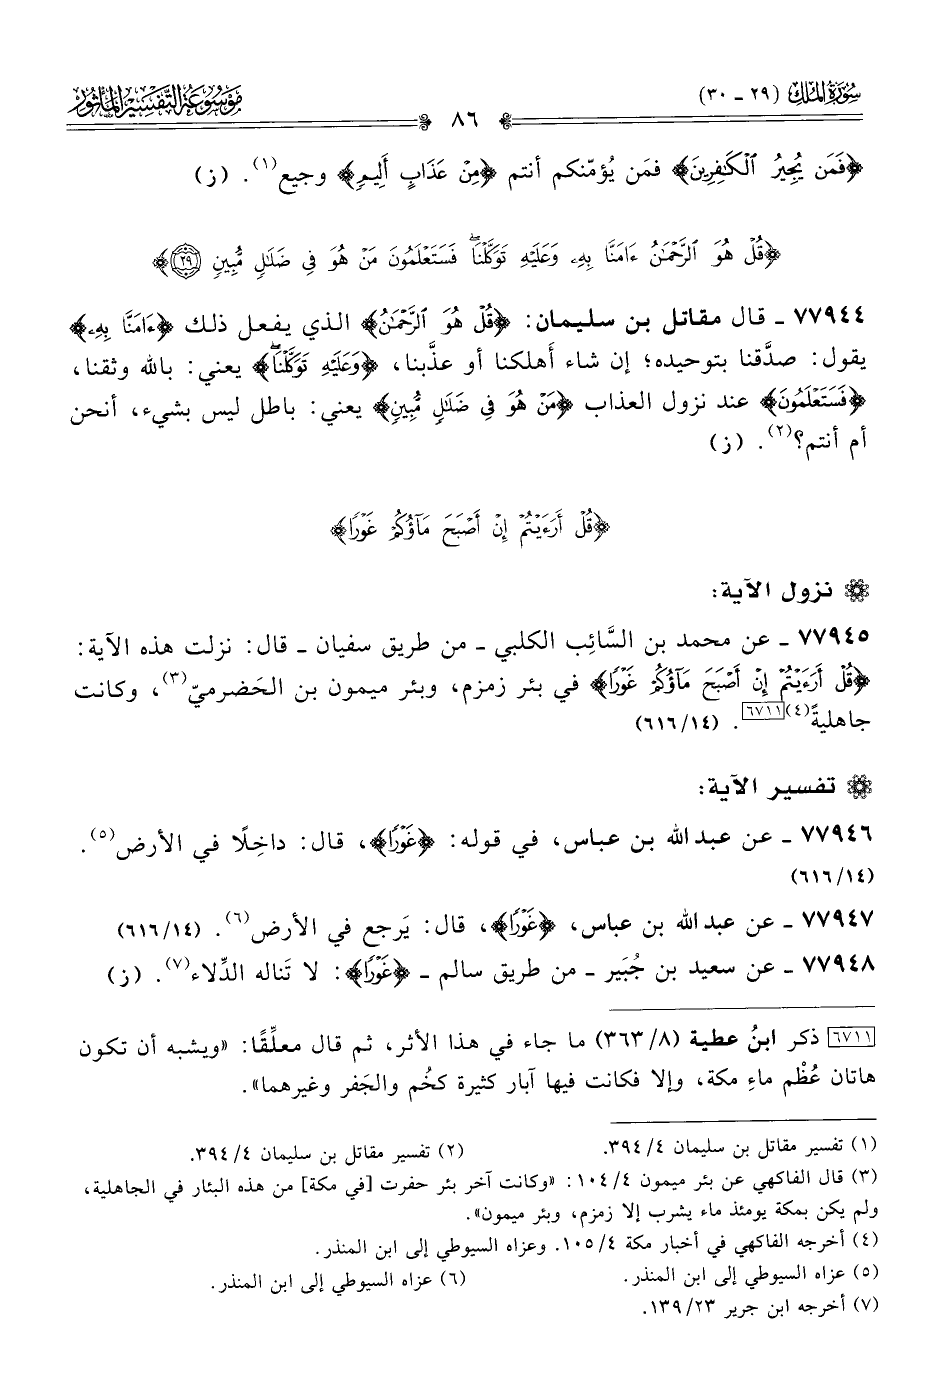 سُورَةُ المُلكِ (٢٩ - ٣٠)
٨٦
مَوْسُوعَةُ التَّفْسِيرِ المَأْثُورِ
﴿فَمَن يُجِيرُ ٱلْكَـٰفِرِينَ﴾ فمَن يُؤمّنكم أنتم ﴿مِنْ عَذَابٍ أَلِيمٍ﴾ وجيع(١). (ز)
﴿قُلْ هُوَ ٱلرَّحْمَـٰنُ ءَامَنَّا بِهِۦ وَعَلَيْهِ تَوَكَّلْنَاۖ فَسَتَعْلَمُونَ مَنْ هُوَ فِى ضَلَـٰلٍ مُّبِينٍ ٢٩﴾
٧٧٩٤٤ - قال مقاتل بن سليمان: ﴿قُلْ هُوَ ٱلرَّحْمَـٰنُ﴾ الذي يفعل ذلك ﴿ءَامَنَّا بِهِۦ﴾
يقول: صدَّقنا بتوحيده؛ إن شاء أهلكنا أو عذَّبنا، ﴿وَعَلَيْهِ تَوَكَّلْنَاۖ﴾ يعني: بالله وثقنا،
﴿فَسَتَعْلَمُونَ﴾ عند نزول العذاب ﴿مَنْ هُوَ فِى ضَلَـٰلٍ مُّبِينٍ﴾ يعني: باطل ليس بشيء، أنحن
أم أنتم؟(٢). (ز)
﴿قُلْ أَرَءَيْتُمْ إِنْ أَصْبَحَ مَآؤُكُمْ غَوْرًا﴾
نزول الآية:
٧٧٩٤٥ - عن محمد بن السَّائِب الكلبي - من طريق سفيان - قال: نزلت هذه الآية:
﴿قُلْ أَرَءَيْتُمْ إِنْ أَصْبَحَ مَآؤُكُمْ غَوْرًا﴾ في بئر زمزم، وبئر ميمون بن الحَضرميّ(٣)، وكانت
جاهليةً(٤)[٦٧١١]. (١٤/٦١٦)
تفسير الآية:
٧٧٩٤٦ - عن عبد الله بن عباس، في قوله: ﴿غَوْرًا﴾، قال: داخِلًا في الأرض(٥).
(١٤/٦١٦)
٧٧٩٤٧ - عن عبد الله بن عباس، ﴿غَوْرًا﴾، قال: يَرجع في الأرض(٦). (١٤/٦١٦)
٧٧٩٤٨ - عن سعيد بن جُبَير - من طريق سالم - ﴿غَوْرًا﴾: لا تَناله الدِّلاء(٧). (ز)
[٦٧١١] ذكر ابنُ عطية (٨/٣٦٣) ما جاء في هذا الأثر، ثم قال معلِّقًا: «ويشبه أن تكون
هاتان عُظْم ماءِ مكة، وإلا فكانت فيها آبار كثيرة كخُم والجَفر وغيرهما».
(١) تفسير مقاتل بن سليمان ٤/٣٩٤. (٢) تفسير مقاتل بن سليمان ٤/٣٩٤.
(٣) قال الفاكهي عن بئر ميمون ٤/١٠٤: «وكانت آخر بئر حفرت [في مكة] من هذه البئار في الجاهلية،
ولم يكن بمكة يومئذ ماء يشرب إلا زمزم، وبئر ميمون».
(٤) أخرجه الفاكهي في أخبار مكة ٤/١٠٥. وعزاه السيوطي إلى ابن المنذر.
(٥) عزاه السيوطي إلى ابن المنذر. (٦) عزاه السيوطي إلى ابن المنذر.
(٧) أخرجه ابن جرير ٢٣/١٣٩.